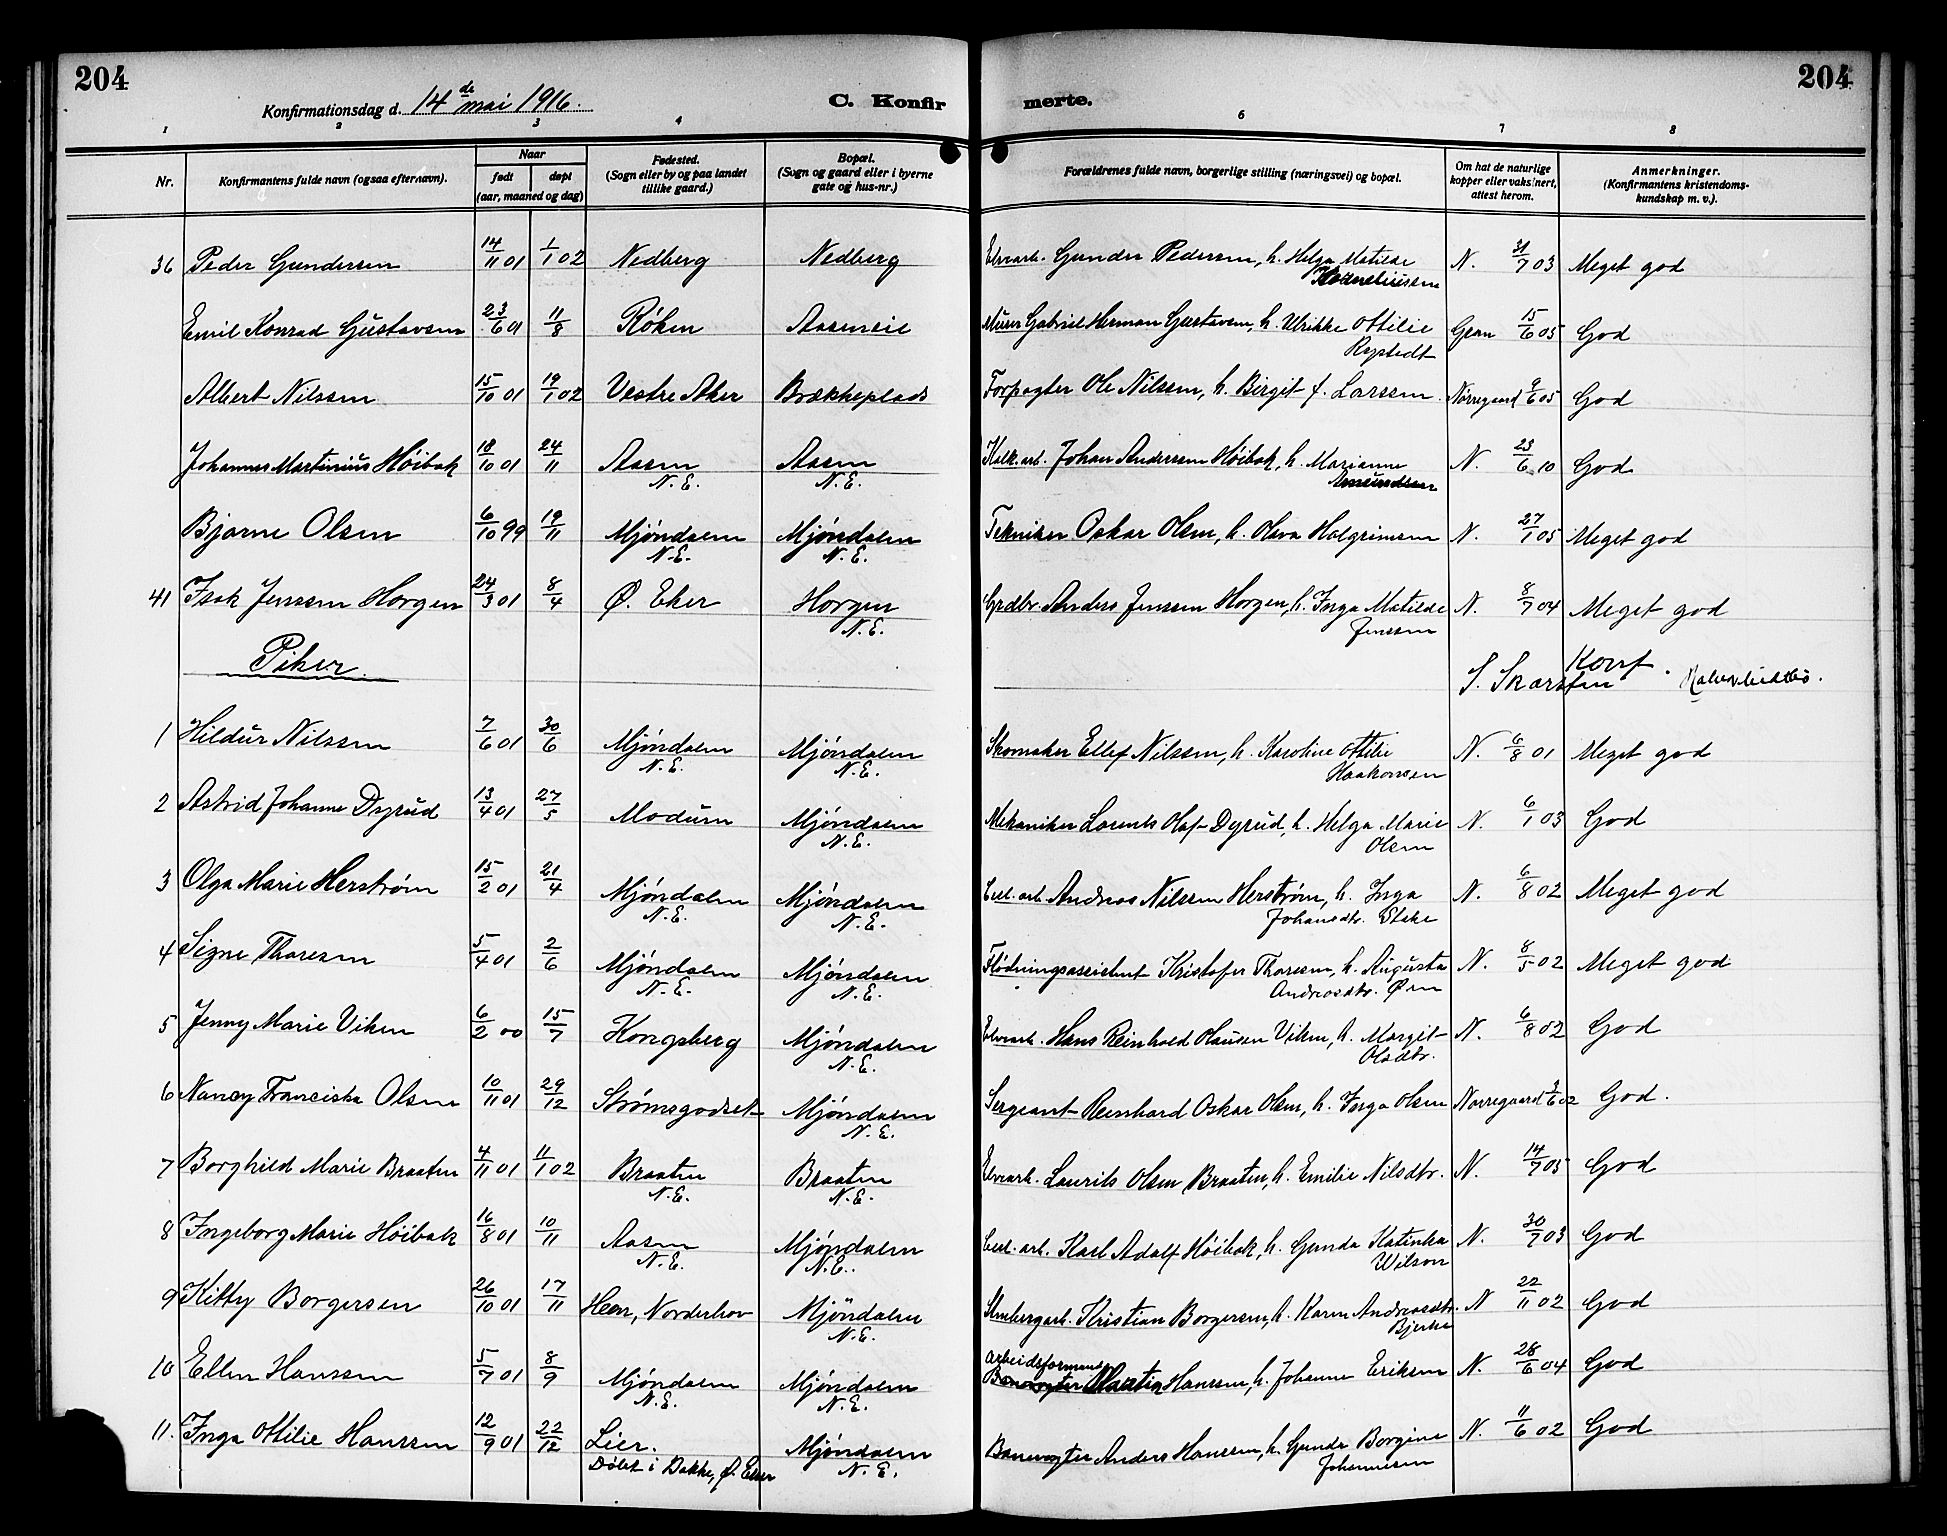 204 204
Konfirmationsdag d. 14de mai 1916. C. Konfir merte.
1 2 3 4 6 7 8
Nr. Konfirmantens fulde navn (ogsaa efternavn). Naar født døpt (aar, maaned og dag) Fødested. (Sogn eller by og paa landet tillike gaard.) Bopæl. (Sogn og gaard eller i byerne gate og hus-nr.) Forældrenes fulde navn, borgerlige stilling (næringsvei) og bopæl. Om hat de naturlige kopper eller vaksinert, attest herom. Anmerkninger. (Konfirmantens kristendoms-kundskap m. v.).
36 Peder Gundersen 14/11 01 1/1 02 Nedberg Nedberg Elvearb. Gunder Pedersen, h. Helga Matilde N. 31/7 03 Meget god
Korneliussen
Emil Konrad Gustavsen 23/6 01 11/8 Røken Aasencie Murer Gabriel Herman Gustavsen, h. Ulrikke Ottilie Gran 15/6 05 God
Rystedt
Albert Nilssen 15/10 01 19/1 02 Vestre Aker Brækkeplads Forpagter Ole Nilssen, h. Birgit f. Larssen Nørregaard 9/6 05 God
Johannes Martinius Höibak 18/10 01 24/11 Aasen N.E. Aasen N.E. Kalk.arb. Johan Anderssen Höibak, h. Marianne N. 23/6 10 God
Amundsen
Bjarne Olsen 6/10 99 19/11 Mjöndalen N.E. Mjöndalen N.E. Tekniker Oskar Olsen, h. Olava Halgrimsen N. 27/1 05 Meget god
41 Isak Jenssen Horgen 24/3 01 8/4 Ø. Eker Horgen N.E. Grdbr. Anders Jenssen Horgen, h. Inga Matilde N. 8/7 04 Meget god
Jenssen
Piker Konf.
S. Skarsten
1 Hildur Nilssen 7/6 01 30/6 Mjöndalen N.E. Mjöndalen N.E. Skomaker Ellef Nilssen, h. Karoline Ottilie N. 6/8 01 Meget god
Haakonsen
2 Astrid Johanne Dyrud 13/4 01 27/5 Modum Mjöndalen N.E. Mekaniker Lorents Olaf Dyrud, h. Helga Marie N. 6/1 03 God
Olsen
3 Olga Marie Herström 15/2 01 21/4 Mjöndalen N.E. Mjöndalen N.E. Cell. arb. Andreas Nilssen Herström, h. Inga N. 6/8 02 Meget god
Johansdtr. Stake
4 Signe Thoresen 5/4 01 2/6 Mjöndalen N.E. Mjöndalen N.E. Flödningsassistent Kristofer Thoresen, h. Augusta N. 8/5 02 Meget god
Andreasdtr. Øen
5 Jenny Marie Viken 6/2 00 15/7 Kongsberg Mjöndalen N.E. Elvearb. Hans Reinhold Hansen Viken, h. Margit N. 6/8 02 God
Olsdtr.
6 Nancy Franciska Olsen 10/11 01 29/12 Strömsgodset Mjöndalen N.E. Sergeant Reinhard Oskar Olsen, h. Inga Olsen Nørregaard 3/6 02 God.
7 Borghild Marie Braaten 4/11 01 11/1 02 Braaten N.E. Braaten N.E. Elvearb. Laurits Olsen Braaten, h. Emilie Nilsdtr. N. 14/7 05 God
8 Ingeborg Marie Höibak 16/8 01 10/11 Aasen N.E. Mjöndalen N.E. Cell. arb. Karl Adolf Höibak, h. Gunda Katinka N. 30/7 03 God
Wilson
9 Kitty Borgersen 26/10 01 17/11 Heen, Norderhov Mjöndalen N.E. Stenbergarb. Kristian Borgersen, h. Karen Andreasdtr. N 22/11 02 God
Bjerke
10 Ellen Hanssen 5/7 01 8/9 Mjöndalen N.E. Mjöndalen N.E. Arbeidsformand Banevogter Martin Hanssen, h. Johanne Eriksen N. 28/6 04 God
11. Inga Ottilie Hanssen 12/9 01 22/12 Lier. Döbt i Bakke, Ø. Eker Mjöndalen N.E. Banevogter Anders Hanssen, h. Gunda Borgine N. 11/6 02 God
Johannesen